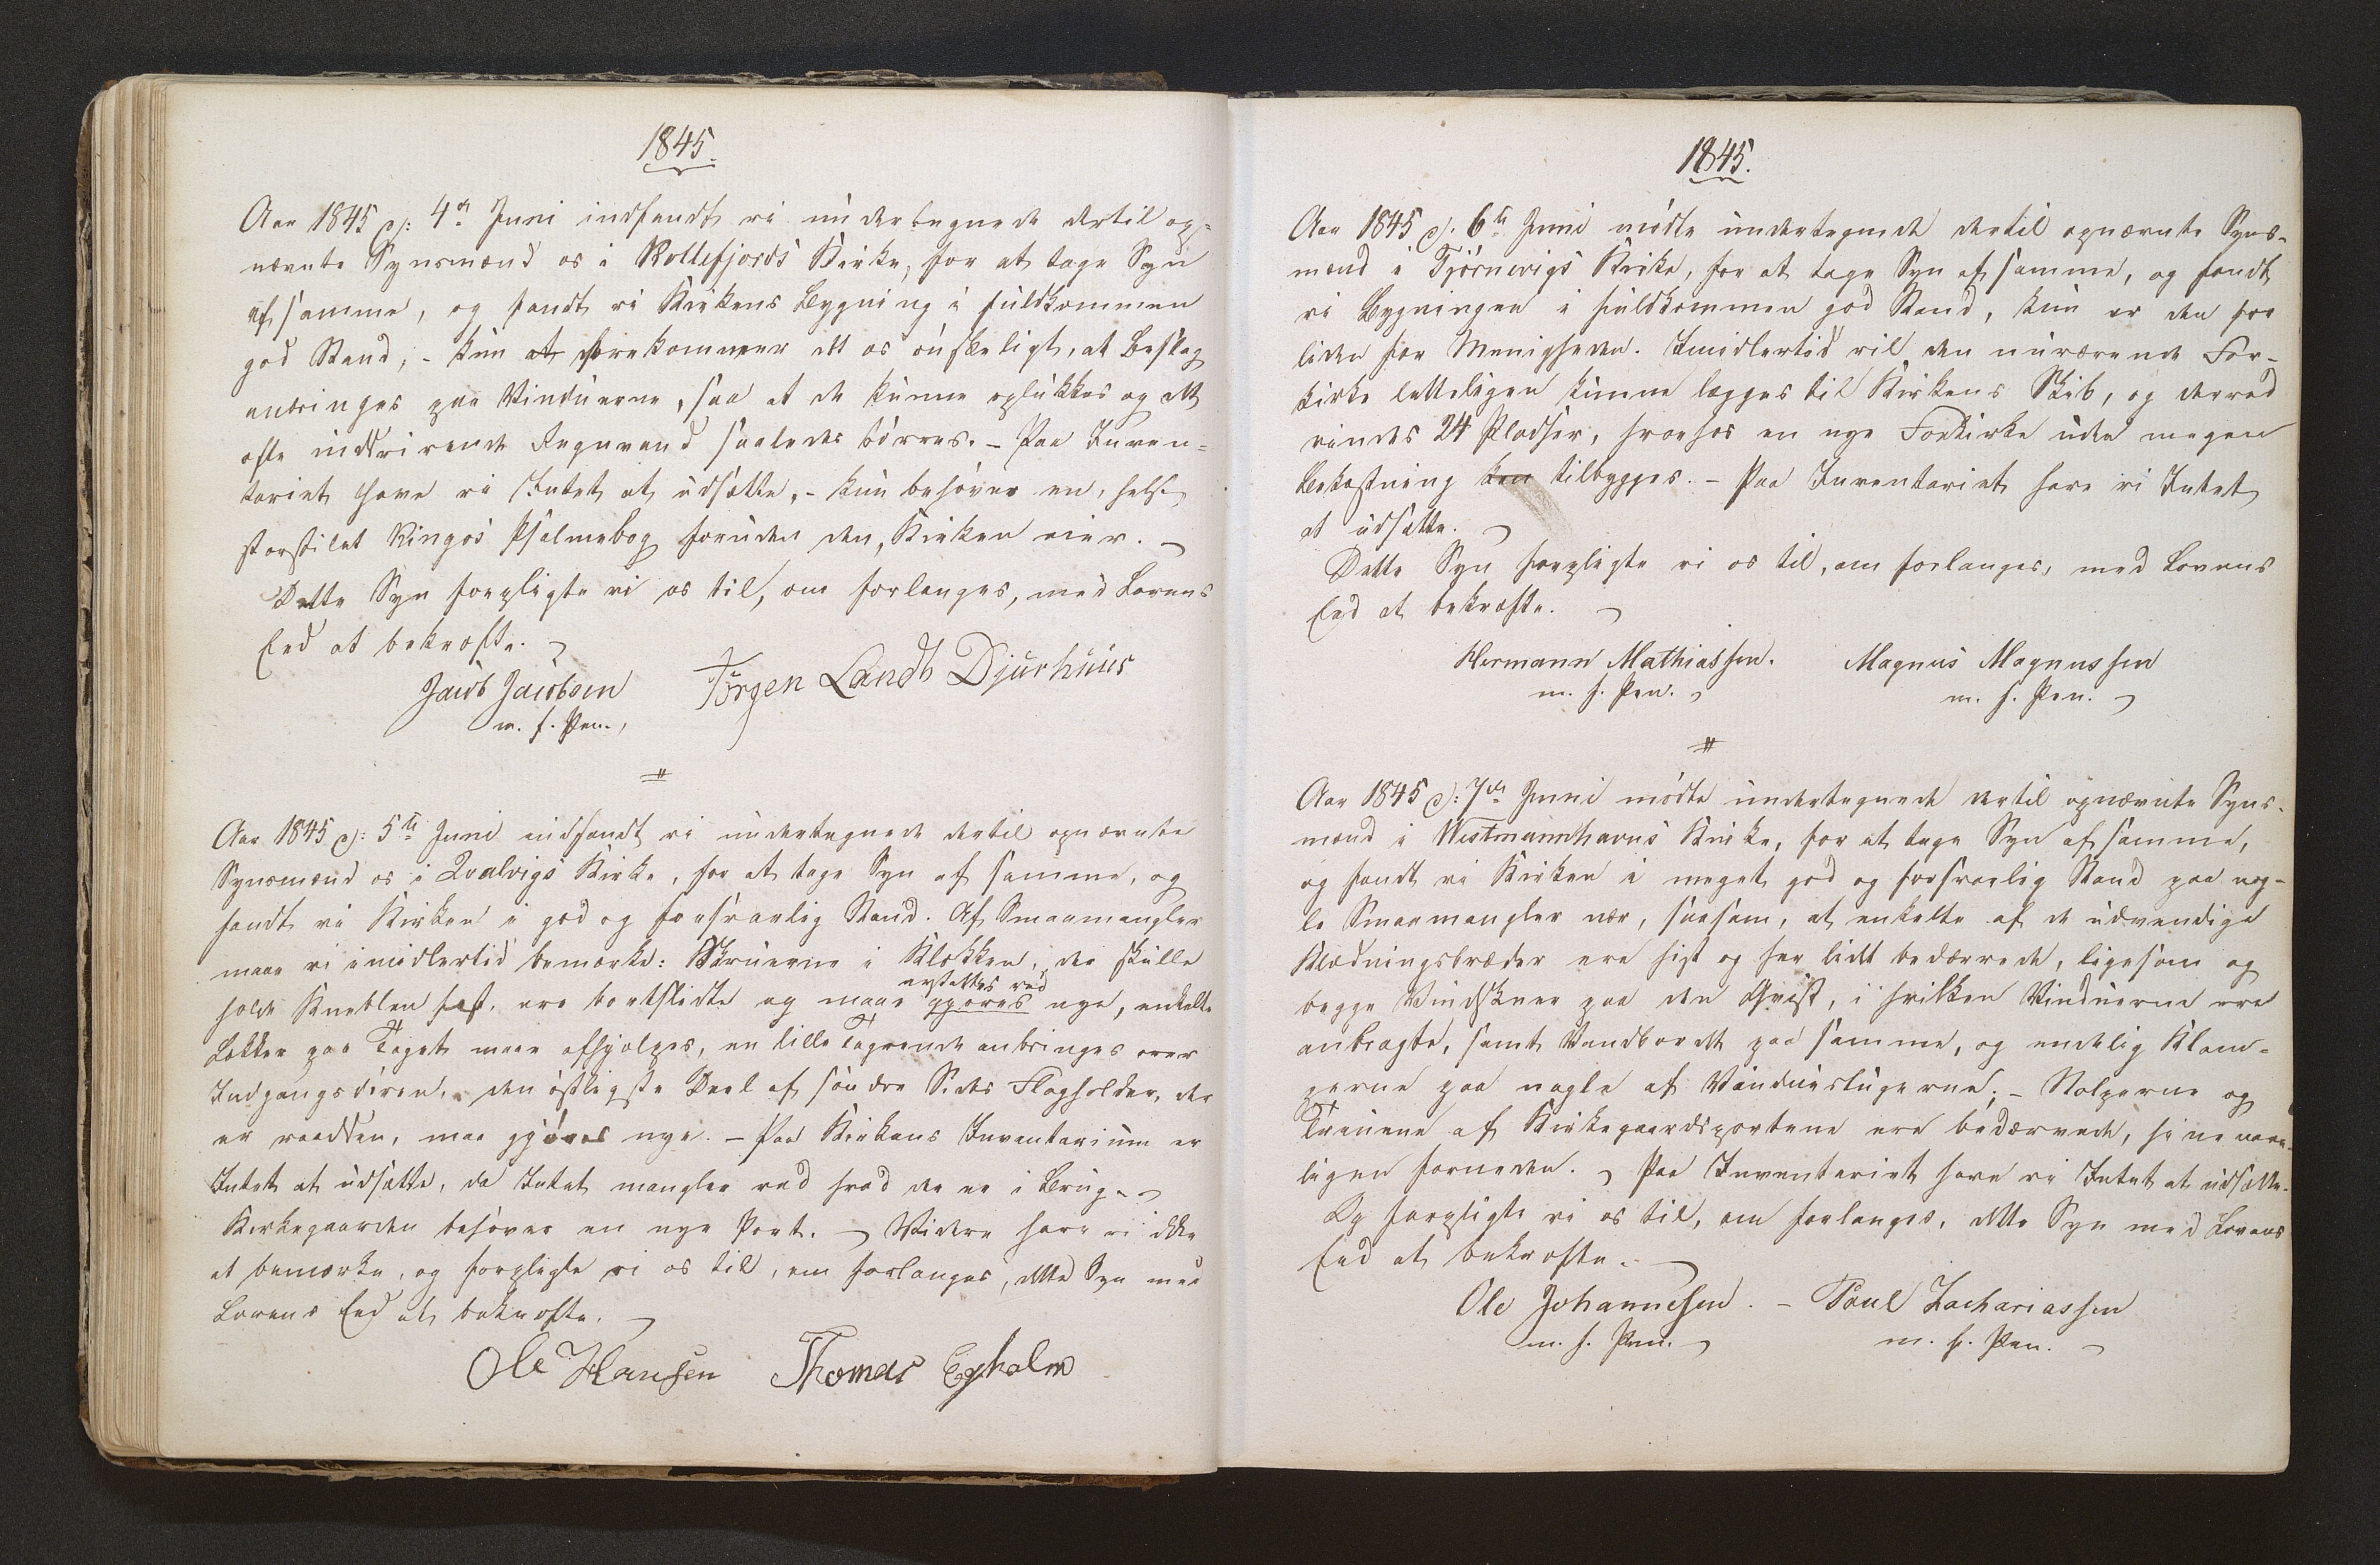 1845.
Aar 1845 d: 4de Juni indfandt vi undertegnede dertil op-
nævnte Synsmænd os i Kollefjords Kirke, for at tage Syn
af samme, og fandt vi Kirkens Bygning i fuldkommen
god Stand, - kun at forekommer det os ønskeligt, at Beslag
anbringes paa Vinduerne, saa at de kunne oplukkes og det
ofte inddrivende Regnvand saaledes tørres. - Paa Inven-
tariet have vi Intet at udsætte, - kun behøves en, helst
storstilet Kingos Psalmebog foruden den, Kirken eier. -
Dette Syn forpligte vi os til, om forlanges, med Lovens
Eed at bekræfte.
Jacob Jacobsen Jørgen Landt Djurhuus
m. f. Pen.
Aar 1845 d: 5te Juni indfandt vi undertegnede dertil opnævnte
Synsmænd os i Qvalvigs Kirke, for at tage Syn af samme, og
fandt vi Kirken i god og forsvarlig Stand. Af Smaamangler
maae vi imidlertid bemærke: Skruerne i Klokken, der skulle
erstattes ved
holde Kneblen fast, ere bortslidte og maae gjøres nye, enkelte
Lækker paa Taget maae afhjælpes, en lille Tagrende anbringes over
Indgangsdøren, den østligste Deel af søndre Sides Flagholder, der
er raadden, maa gjøres nye. - Paa Kirkens Inventarium er
Intet at udsætte, da Intet mangler ved hvad der er i Brug. -
Kirkegaarden behøver en nye Port. - Videre have vi ikke
at bemærke, og forpligte vi os til, om forlanges, dette Syn med
Lovens Eed at bekræfte.
Ole Hansen Thomas Egholm
1845.
Aar 1845 d: 6te Juni mødte undertegnede dertil opnævnte Syns-
mænd i Tjörnevigs Kirke, for at tage Syn af samme, og fandt
vi Bygningen i fuldkommen god Stand, kun er den for
liden for Menigheden. Imidlertid vil den nuværende For-
kirke letteligen kunne lægges til Kirkens Skib, og derved
vindes 24 Pladser, hvorhos en nye Forkirke uden megen
Bekostning kan tilbygges. - Paa Inventariet have vi Intet
at udsætte.
Dette Syn forpligte vi os til, om forlanges, med Lovens
Eed at bekræfte.
Hermann Mathiassen. Magnus Magnussen
m. f. Pen. m. f. Pen.
Aar 1845 d: 7de Juni mødte undertegnede dertil opnævnte Syns-
mænd i Westmannhavns Kirke, for at tage Syn af samme,
og fandt vi Kirken i meget god og forsvarlig Stand paa nog-
le Smaamangler nær, saasom, at enkelte af de udvendige
Klædningsbræder ere hist og her lidt bedærvede, ligesom og
begge Vindskeer paa den Qvist, i hvilken Vinduerne ere
anbragte, samt Vandbordet paa samme, og endelig Klam-
perne paa nogle af Vindueslugerne; - Stolperne og
af Kirkegaardsportene ere bedærvede,
ligen forneden. - Paa Inventariet have vi Intet at udsætte.
Og forpligte vi os til, om forlanges, dette Syn med Lovens
Eed at bekræfte. -
Ole Johannesen. - Poul Zachariassen
m. f. Pen. m. f. Pen.